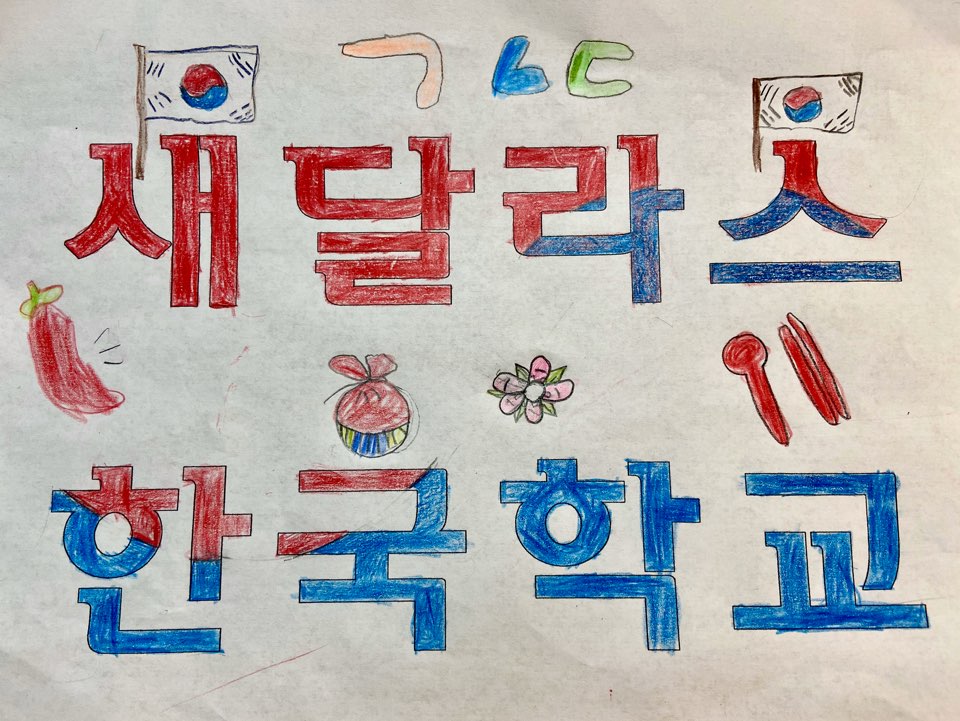 ㄱㄴㄷ
새달라스
한국학교